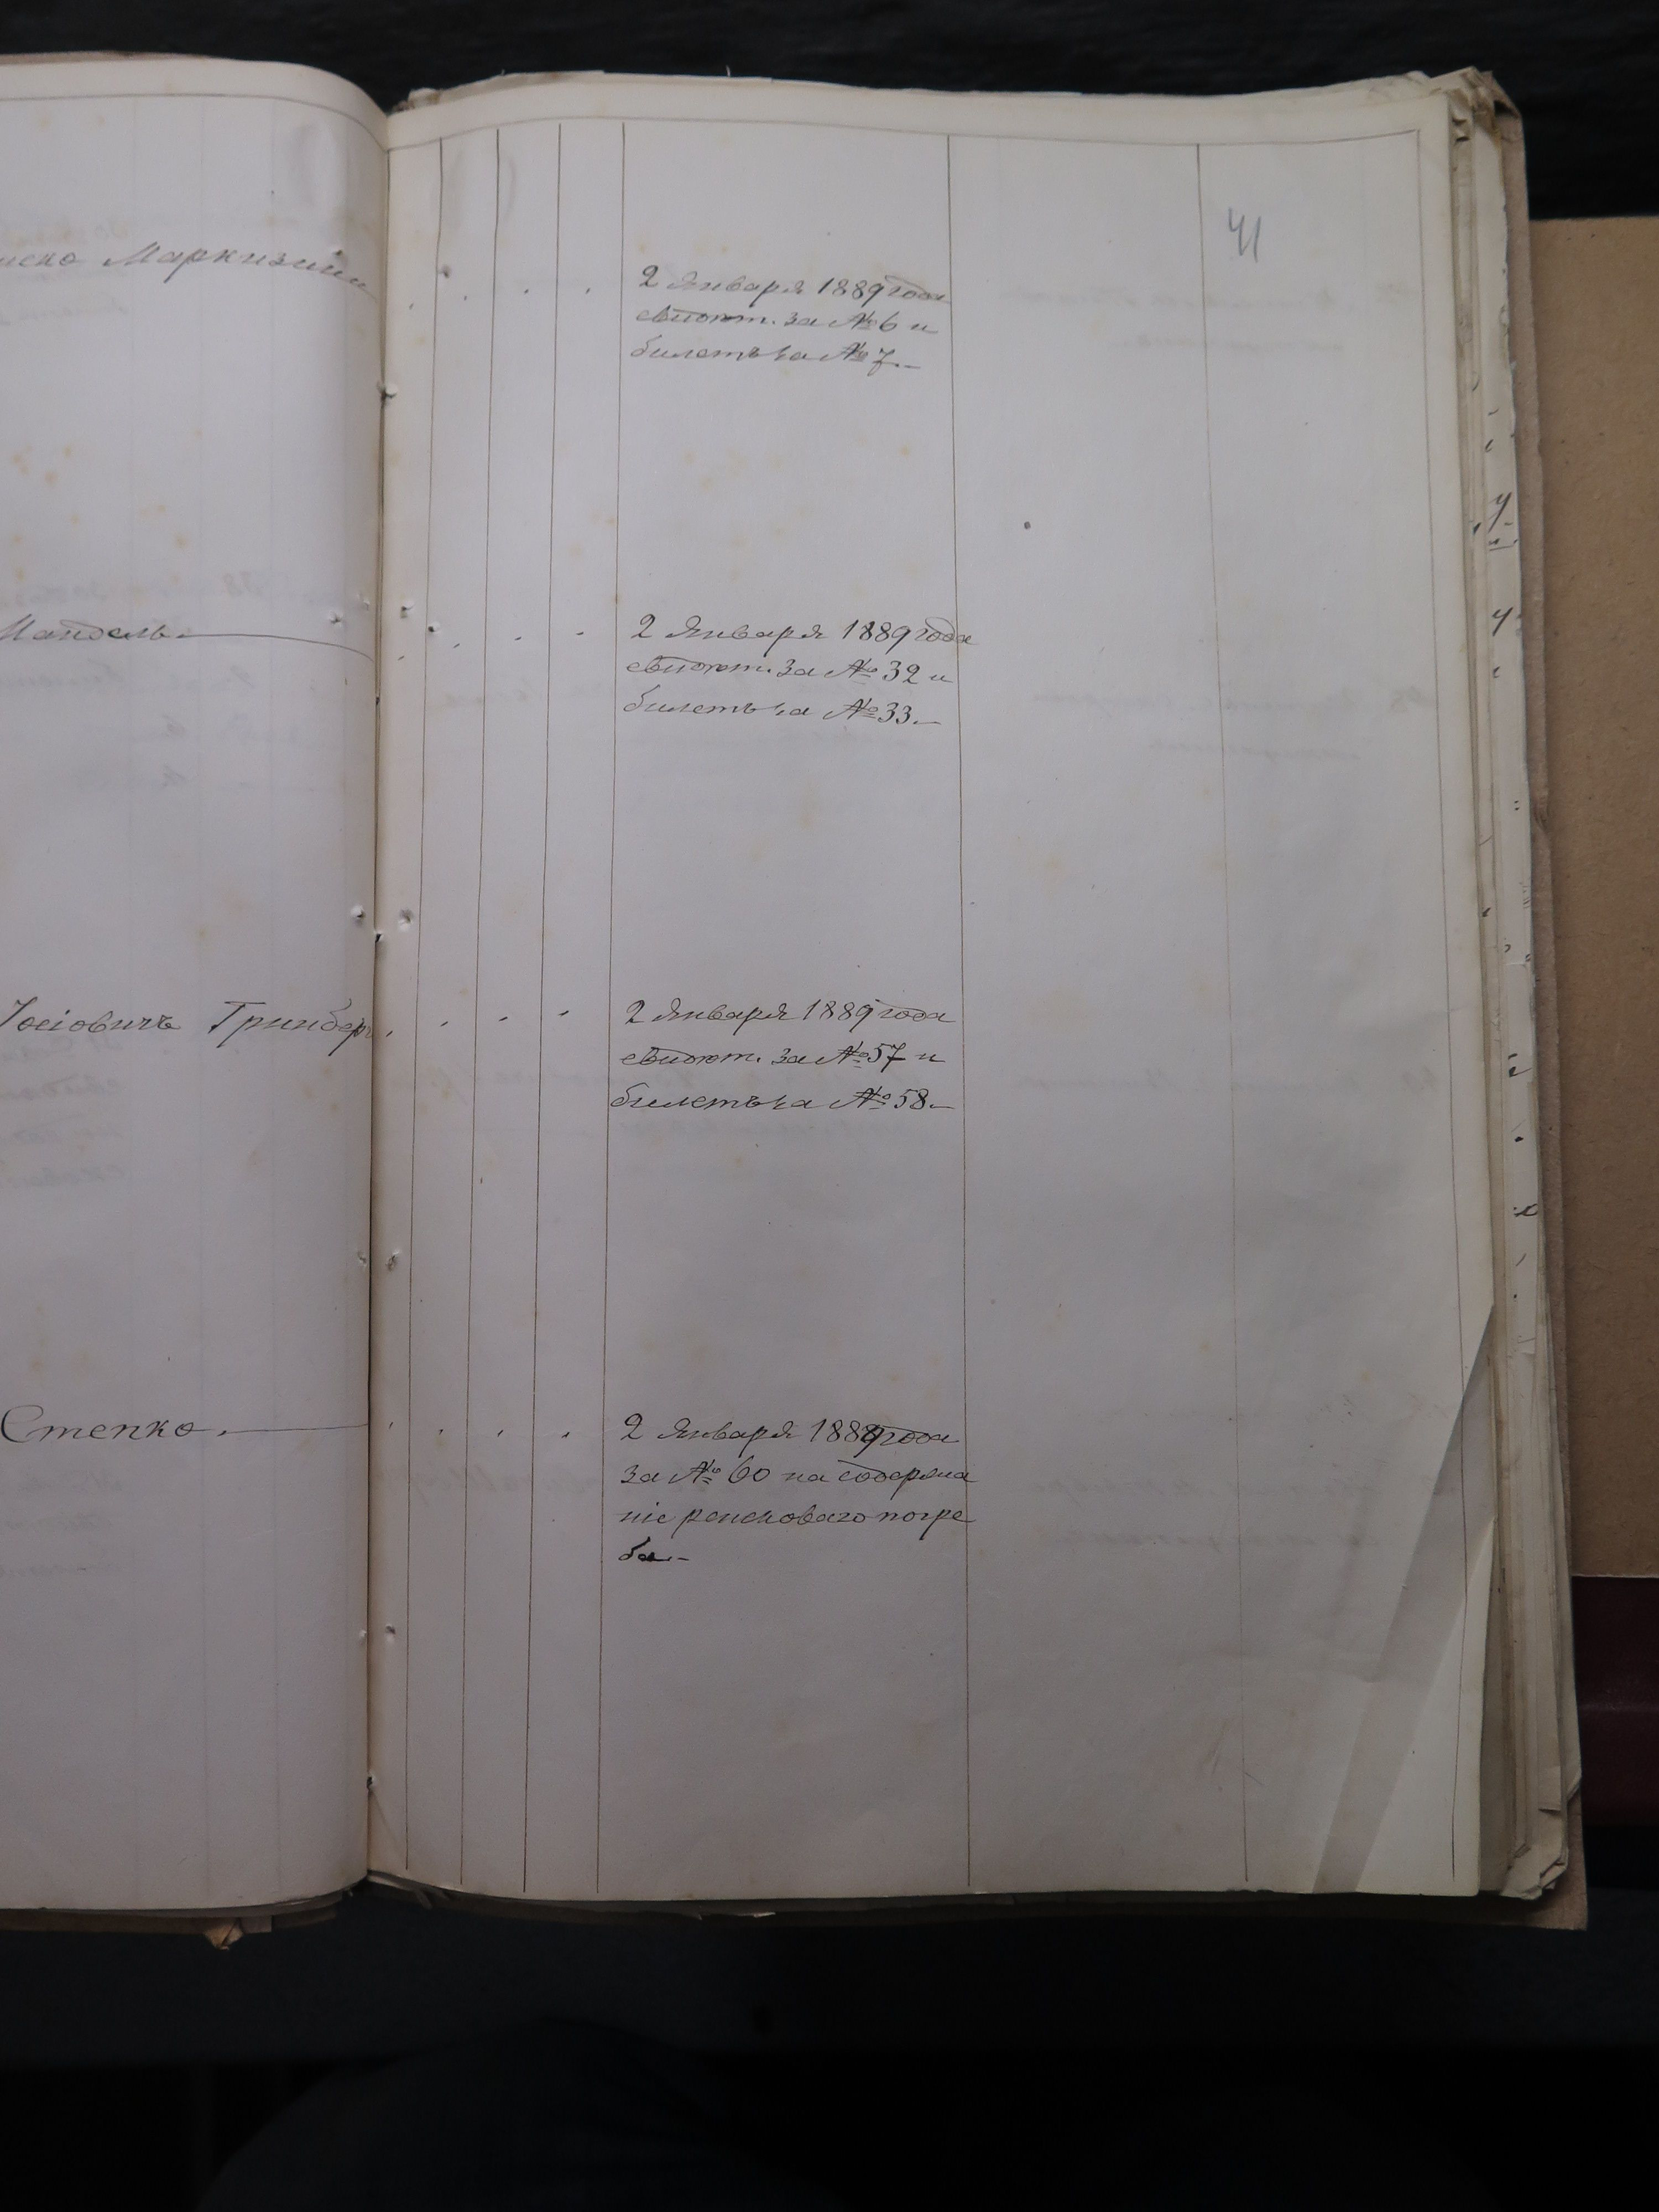 41
Маркизини
2 Января 1889 года
свидѣт. за № 6 и
билетъ за № 7.–
Мандель.
2 Января 1889 года
свидѣт. за № 32 и
билетъ за № 33.–
Іосіовичъ Гринберг
2 Января 1889 года
свидѣт. за № 57 и
билетъ за № 58.–
Степко.
2 Января 1889 года
за № 60 на содержа
ніе ренсковаго погре
ба.–